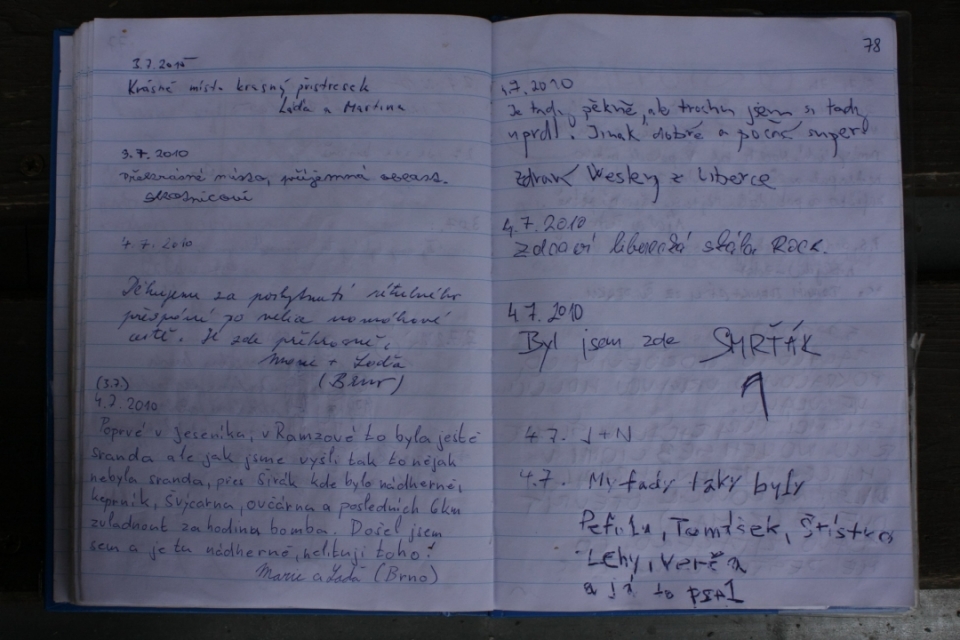 3.7.2010
Krásné místo krásný přístřešek
Laďa a Martina
3.7.2010
Překrásné místo, příjemná
4.7.2010
Děkujeme za poskytnutí
přespání po
cestě. Je zde překrásně,
Marie + Laďa
(Brno)
(3.7.)
4.7.2010
Poprvé v Jeseníka, v Ramzové to byla ještě
sranda ale jak jsme vyšli tak to nějak
nebyla sranda, přes Šírák kde bylo nádherné,
keprník, Švýcárna, ovčárna a posledních 6km
zvládnout za hodinu bomba. Došel jsem
sem a je tu nádherné, nelituji toho!
Marie a Laďa (Brno)
78
4.7.2010
Je tady pěkně, ale trochu jsem si tady
uprdl. Jinak dobré a počasí super!
Zdraví Wesley z Liberce
4.7.2010
Zdraví liberecká skála Rock.
4.7.2010
Byl jsem zde SMRŤÁK
4.7. J+N
4.7. My tady taky byly
Peťulu, Tomišek,
Lehy, Verča
a já to psal